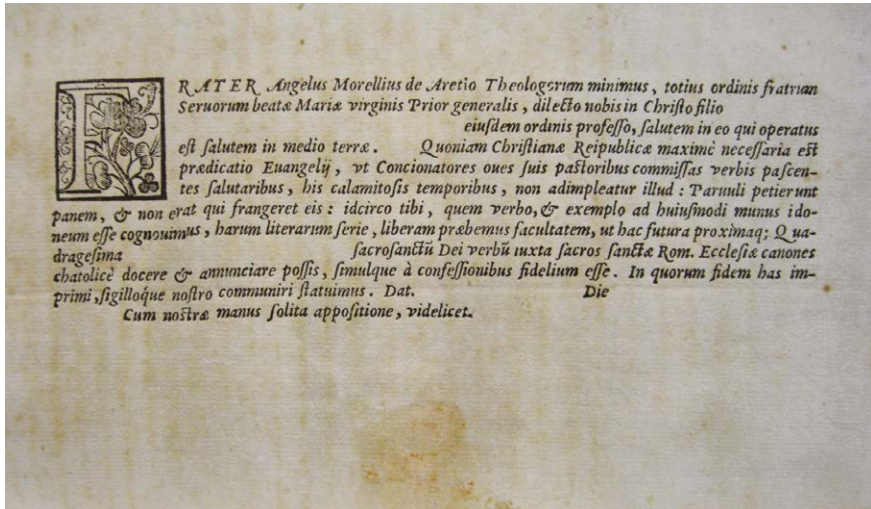 FRATER Angelus Morellius de Aretio Theologorum minimus, totius ordinis fratrum
Seruorum beatæ Mariæ virginis Prior generalis, dilecto nobis in Christo filio
eiusdem ordinis professo, salutem in eo qui operatus
est salutem in medio terræ. Quoniam Christianæ Reipublicæ maximè necessaria est
prædicatio Euangelij, vt Concionatores oues suis pastoribus commissas verbis pascen-
tes salutaribus, his calamitosis temporibus, non adimpleatur illud: Paruuli petierunt
panem, & non erat qui frangeret eis: idcirco tibi, quem verbo, & exemplo ad huiusmodi munus ido-
neum esse cognouimus, harum literarum serie, liberam præbemus facultatem, ut hac futura proximaq; Qua-
dragesima sacrosanctū Dei verbū iuxta sacros sanctæ Rom. Ecclesiæ canones
chatolicè docere & annunciare possis, simulque à confessionibus fidelium esse. In quorum fidem has im-
primi, sigilloq́ue nostro communiri statuimus. Dat. Die
Cum nostræ manus solita appositione, videlicet.